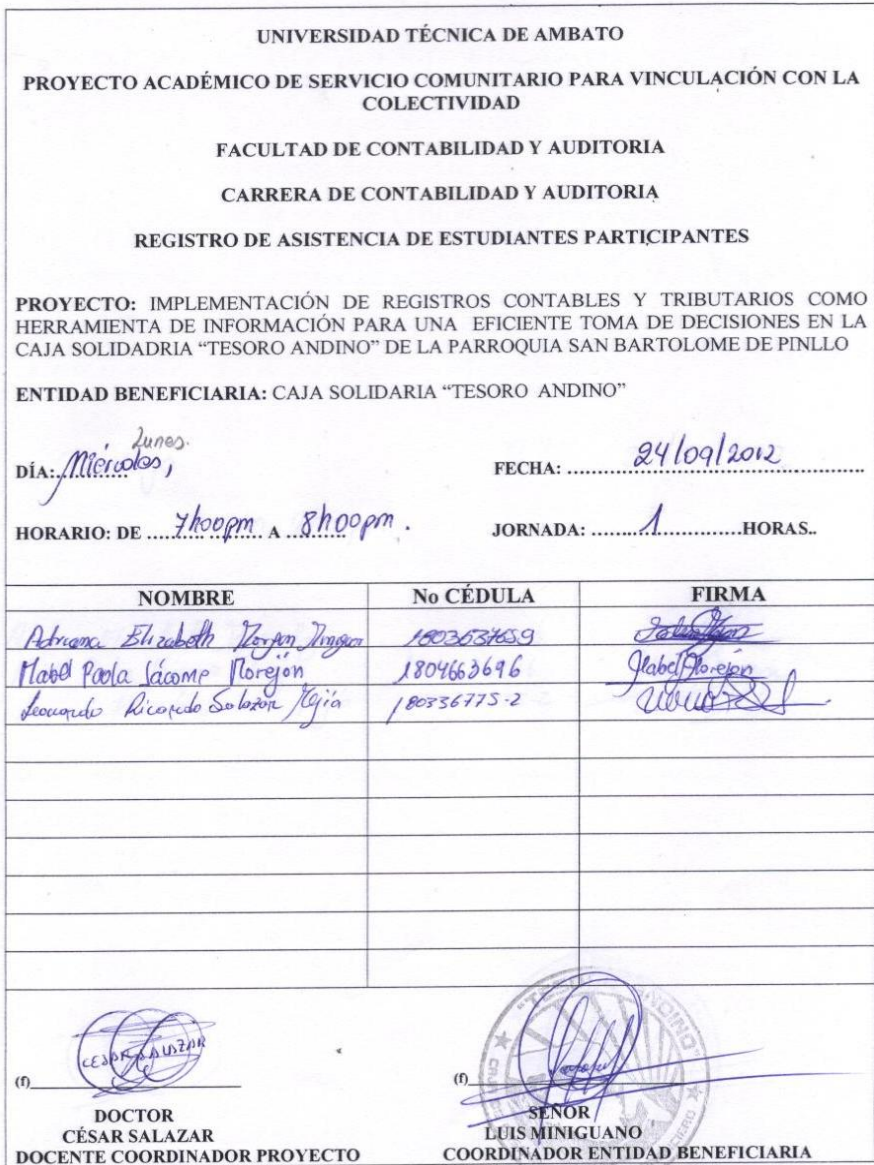 UNIVERSIDAD TÉCNICA DE AMBATO
PROYECTO ACADÉMICO DE SERVICIO COMUNITARIO PARA VINCULACIÓN CON LA
COLECTIVIDAD
FACULTAD DE CONTABILIDAD Y AUDITORIA
CARRERA DE CONTABILIDAD Y AUDITORIA
REGISTRO DE ASISTENCIA DE ESTUDIANTES PARTICIPANTES
PROYECTO: IMPLEMENTACIÓN DE REGISTROS CONTABLES Y TRIBUTARIOS COMO
HERRAMIENTA DE INFORMACIÓN PARA UNA EFICIENTE TOMA DE DECISIONES EN LA
CAJA SOLIDADRIA “TESORO ANDINO” DE LA PARROQUIA SAN BARTOLOME DE PINLLO
ENTIDAD BENEFICIARIA: CAJA SOLIDARIA “TESORO ANDINO”
Lunes.
DÍA: Miércoles, FECHA: 24/09/2012
HORARIO: DE 7h00pm A 8h00pm. JORNADA: 1 HORAS..
NOMBRE No CÉDULA FIRMA
Adriana Elizabeth 1803637659
Mabel Paola Jácome Morejón 1804663696 Mabel Morejón
Leonardo Ricardo Salazar Mejía 180336775-2
CESAR SALAZAR
(f) (f)
DOCTOR SEÑOR
CÉSAR SALAZAR LUIS MINIGUANO
DOCENTE COORDINADOR PROYECTO COORDINADOR ENTIDAD BENEFICIARIA